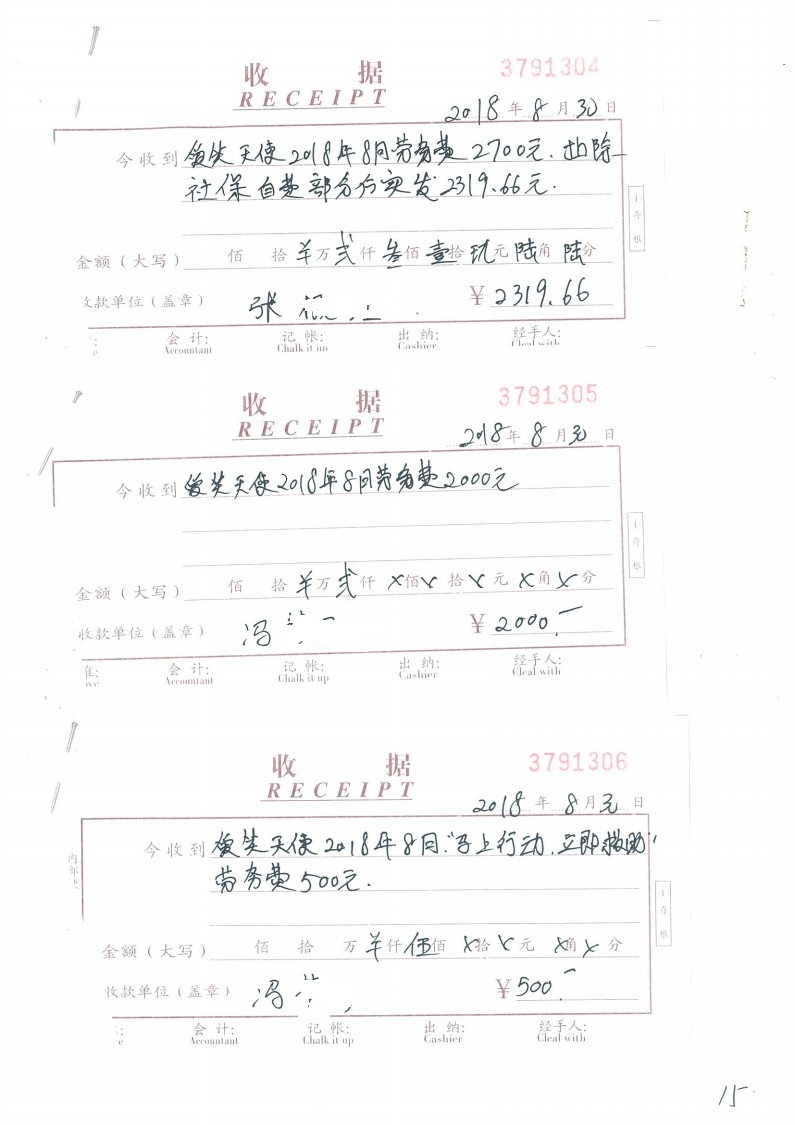 收 据
3791304
RECEIPT
2018年8月30日
今收到 爱笑天使2018年8月劳务费2700元.扣除
社保自费部分后实发2319.66元.
金额（大写） 佰 拾 羊万 弍仟 叁佰 壹拾 玖元 陆角 陆分
收款单位（盖章） 张 ¥2319.66
会计: 记帐: 出纳: 经手人:
Accountant Chalk it up Cashier Cleal with
收 据
3791305
RECEIPT
2018年8月30日
今收到 爱笑天使2018年8月劳务费2000元
金额（大写） 佰 拾 羊万 弍仟 X佰 X拾 X元 X角 X分
收款单位（盖章） 冯 ¥2000.-
准: 会计: 记帐: 出纳: 经手人:
ove Accountant Chalk it up Cashier Cleal with
收 据
3791306
RECEIPT
2018年8月30日
今收到 爱笑天使2018年8月"马上行动.立即救助"
劳务费500元.
金额（大写） 佰 拾 万 羊仟 伍佰 X拾 X元 X角 X分
收款单位（盖章） 冯 ¥500.-
会计: 记帐: 出纳: 经手人:
Accountant Chalk it up Cashier Cleal with
15